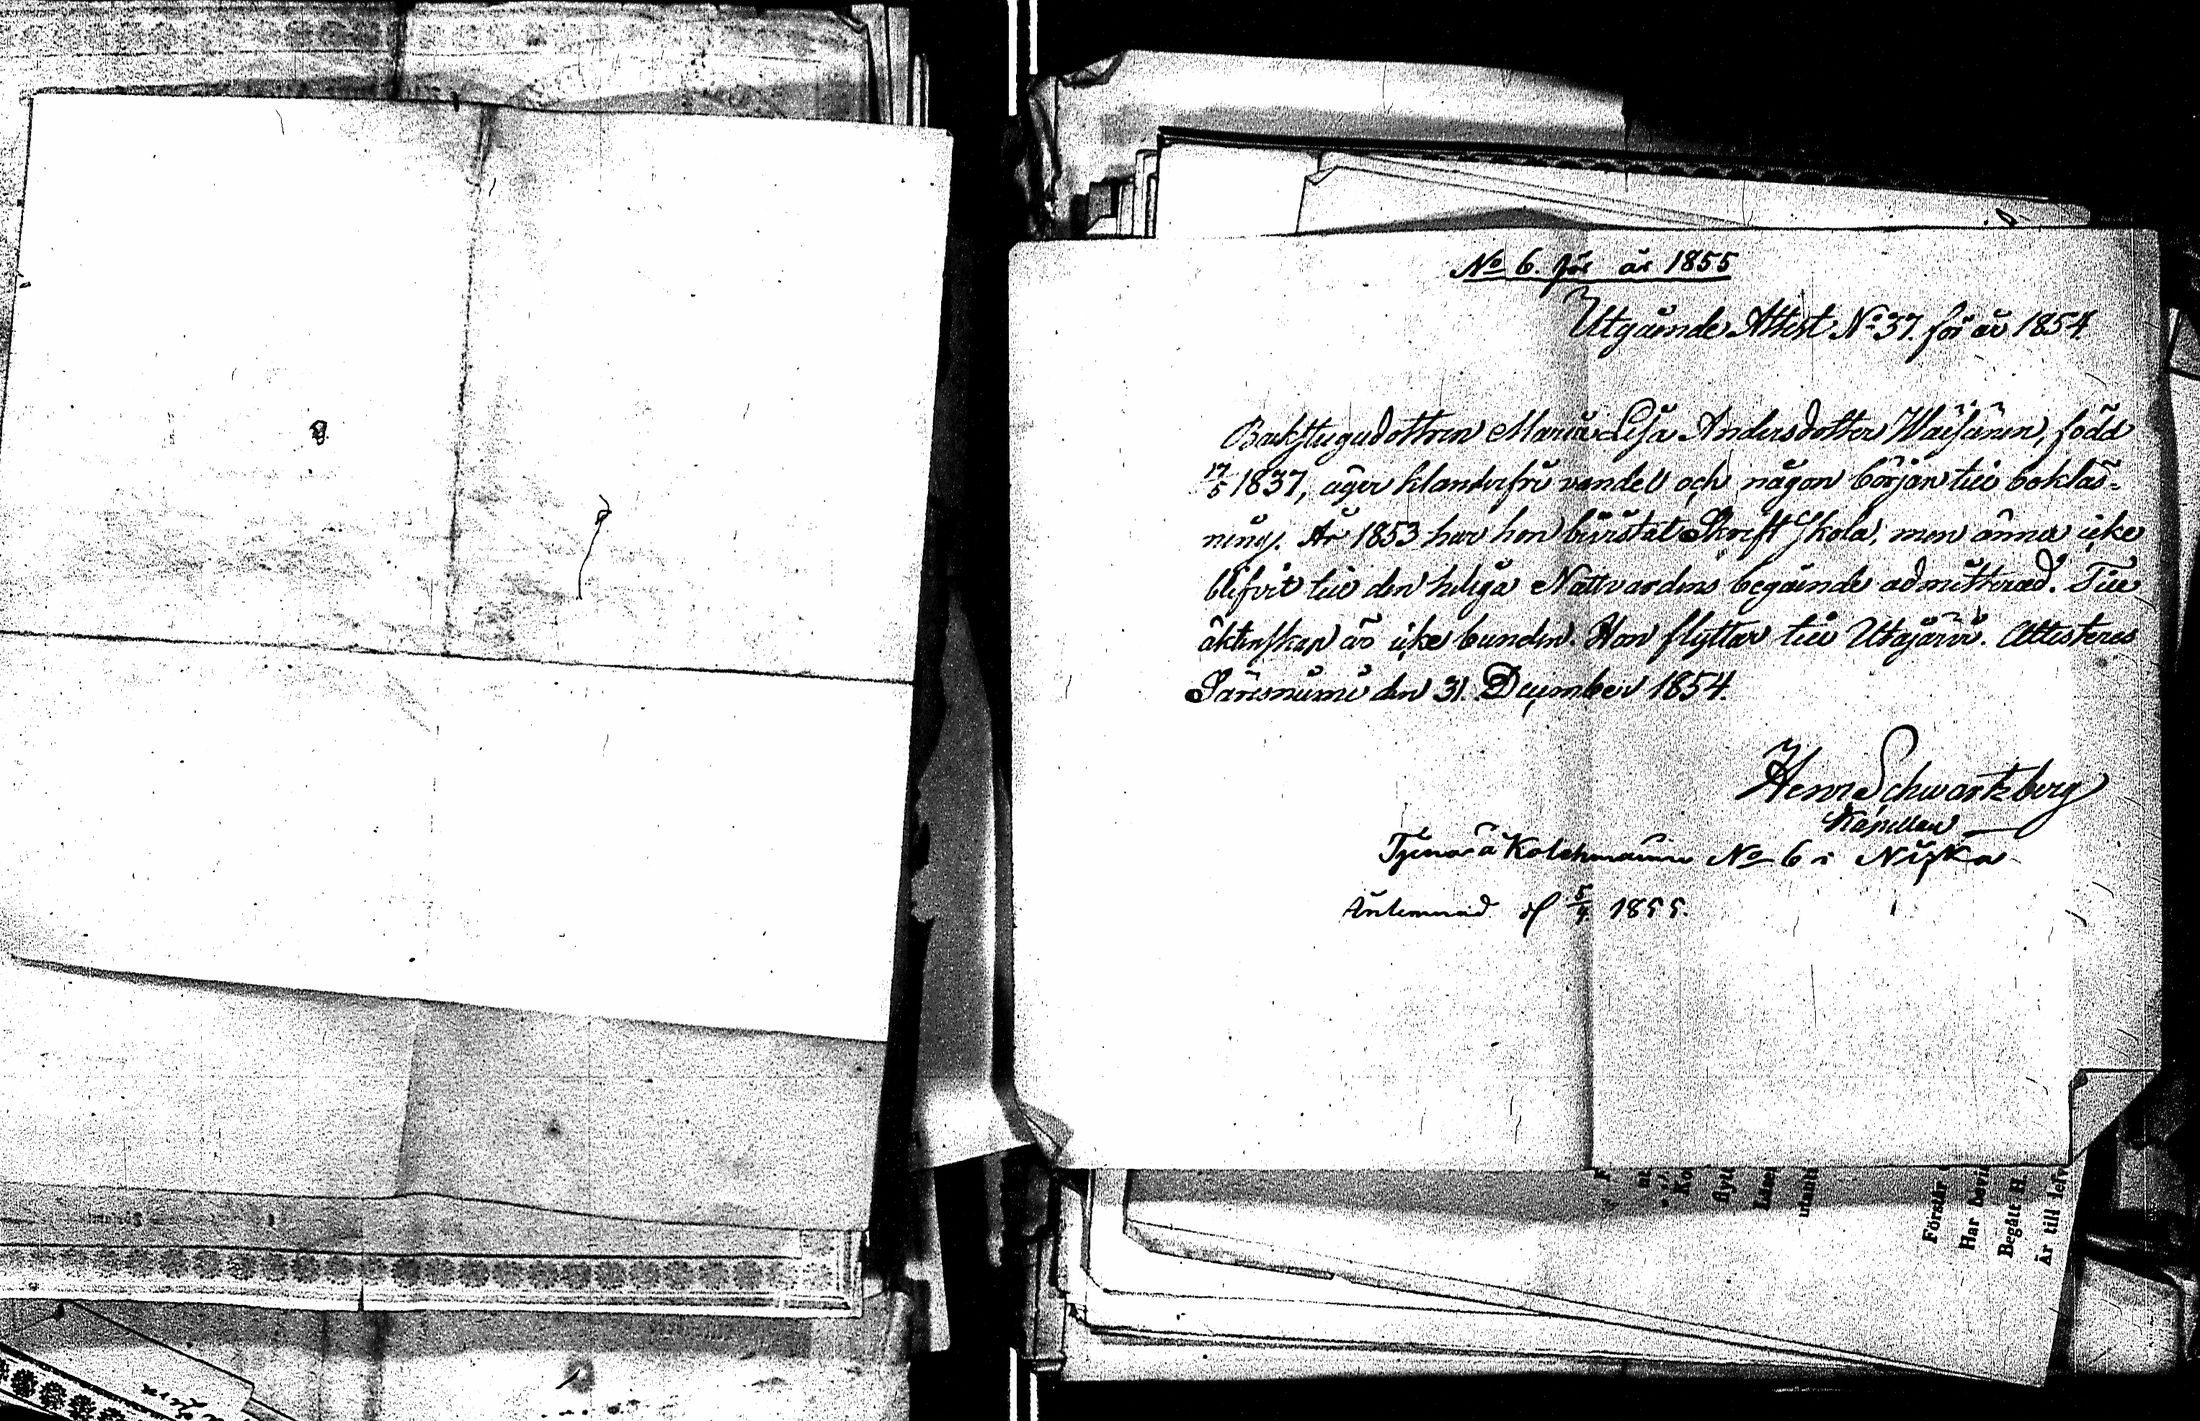 No 6. för år 1855
Utgående Attest No 37. för år 1854.
Backstugudottren Maria Lisa Andersdotter Wäisänen, född
17/5 1837, äger klanderfri vandel och någon början till bokläs-
ning. År 1853 har hon bivistat Skriftskola, men ännu icke
blifvit till den heliga Nattvardens begående admitterad. Till
äktenskap är icke bunden. Hon flyttar till Utajärvi. Attesteras
Säresniemi den 31. December 1854.
Henr Schwartzberg
Kapellan
Tjenar å Kolehmainen No 6 i Niska
Inlemnad d 5/4 1855.
Förstår
Har bevi
Begått H.
Är till lefv